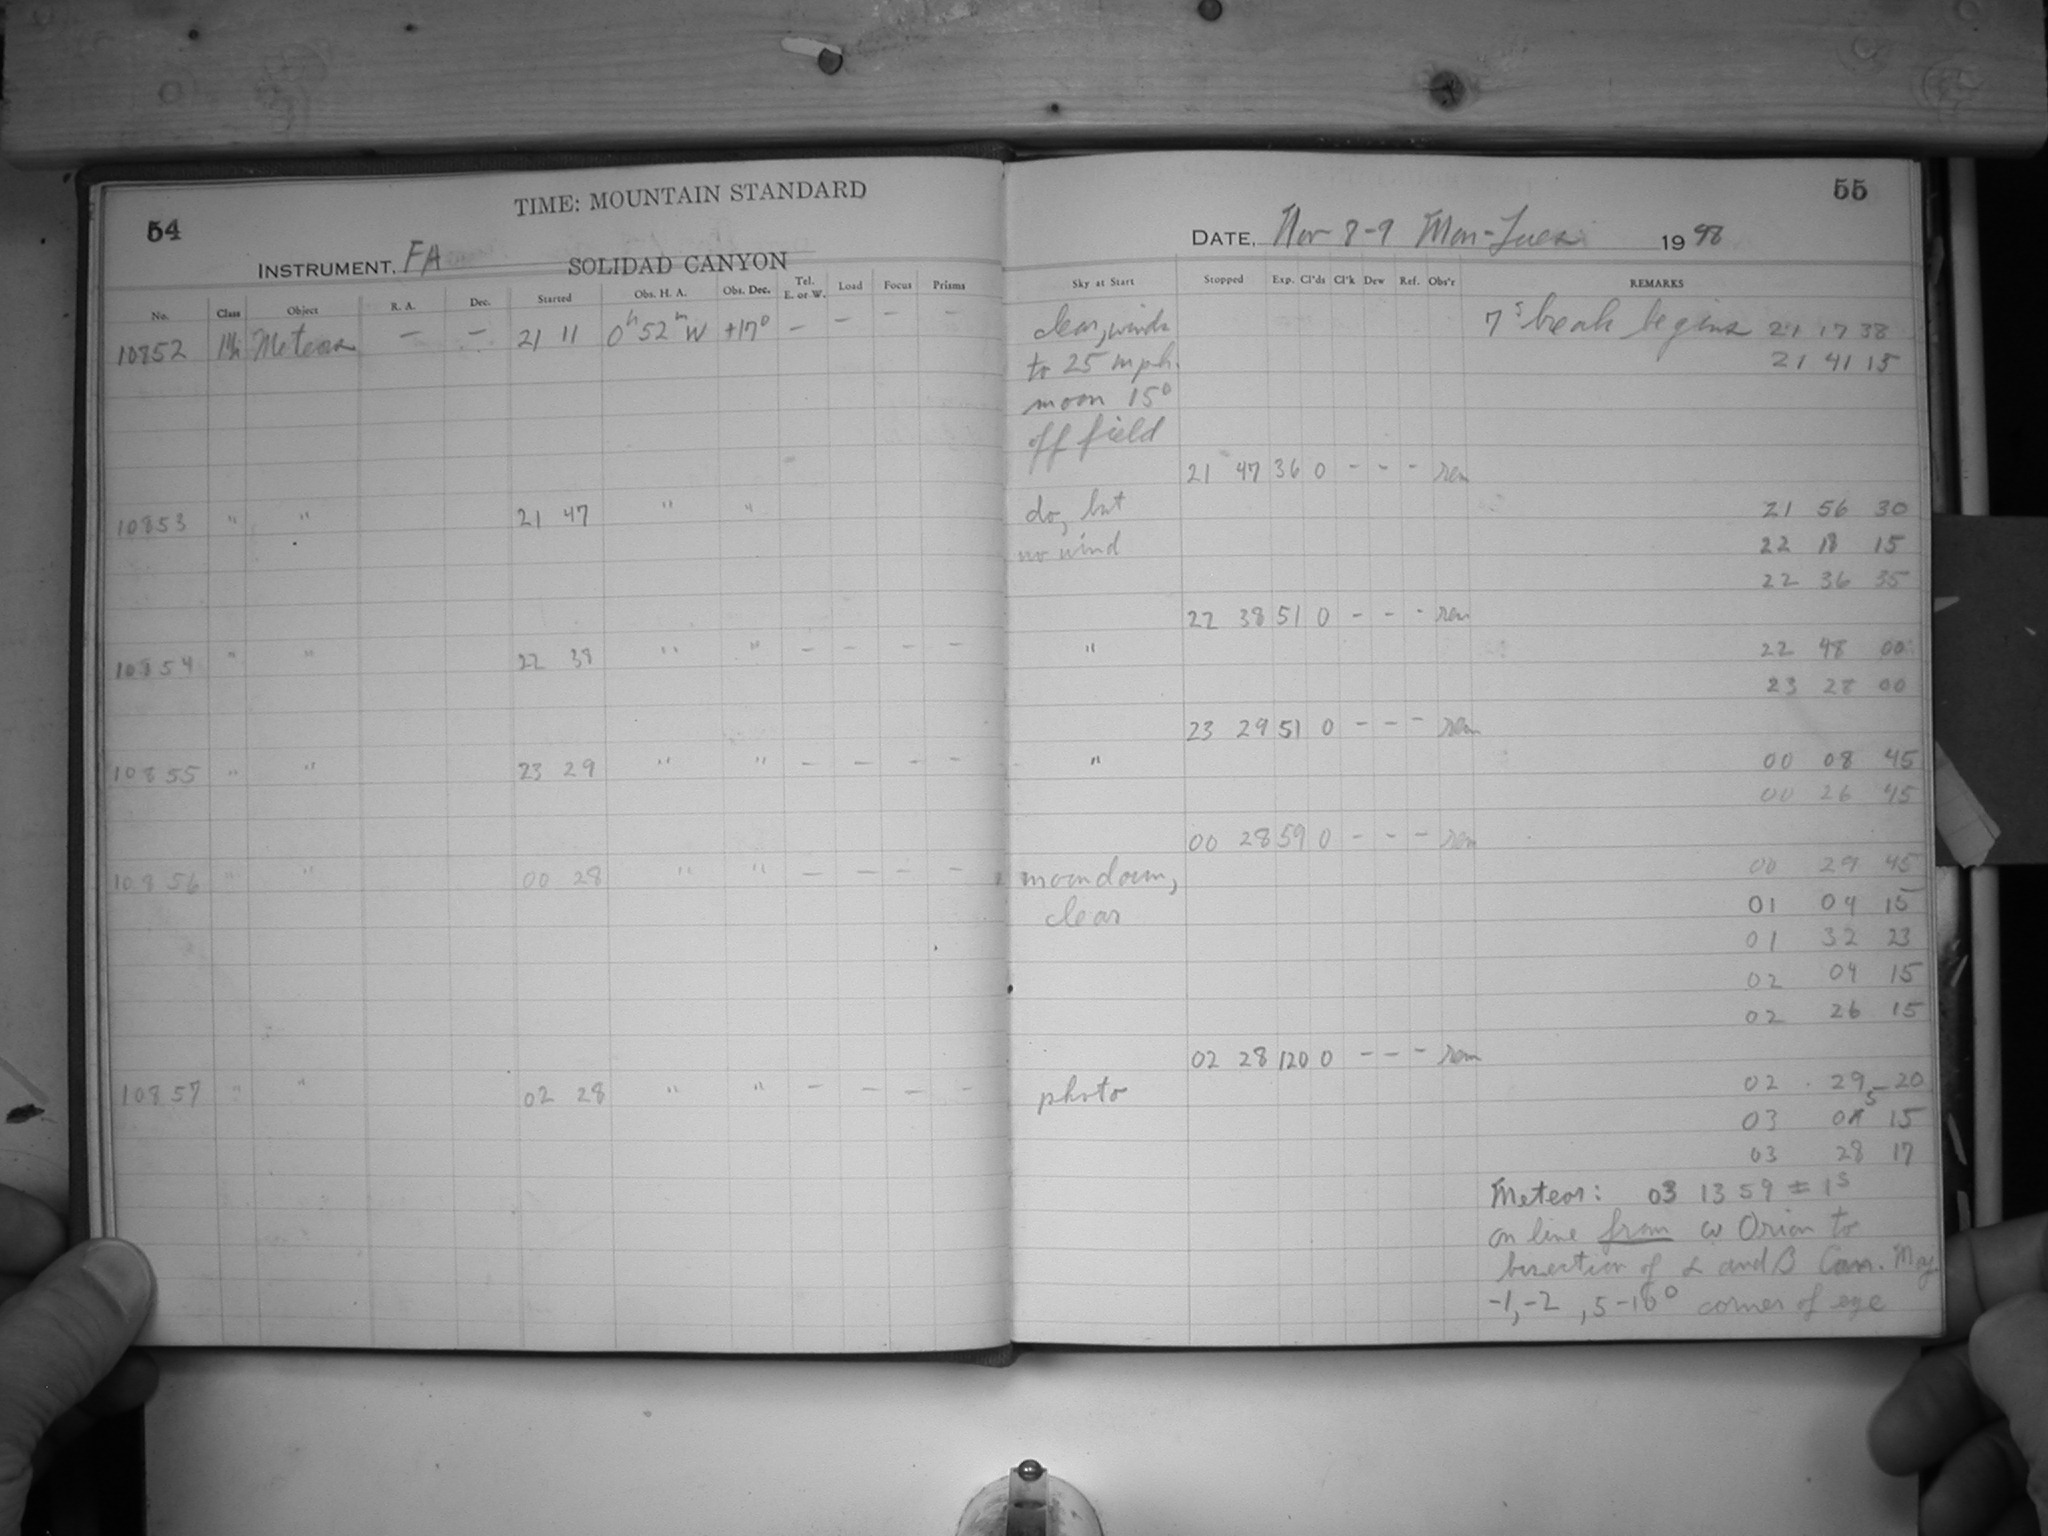 54
TIME: MOUNTAIN STANDARD
INSTRUMENT, FA
SOLIDAD CANYON
No. Class Object R. A. Dec. Started Obs. H. A. Obs. Dec. Tel. E. or W. Load Focus Prisms
10852 Meteors — — 21 11 0h 52m W +17° — — — —
10853 " " 21 47 " "
10854 " " 22 38 " " — — — —
10855 " " 23 29 " " — — — —
10856 " " 00 28 " " — — — —
10857 " " 02 28 " " — — — —
55
DATE, Nov 8-9 Mon-Tues 1948
Sky at Start Stopped Exp. Cl'ds Cl'k Dew Ref. Obs'r REMARKS
clear, winds 7s break begins 21 17 38
to 25 mph. 21 41 15
moon 15°
off field
21 47 36 0 - - - rem
do, but 21 56 30
no wind 22 18 15
22 36 35
22 38 51 0 - - - rem
" 22 48 00
23 28 00
23 29 51 0 - - - rem
" 00 08 45
00 26 45
00 28 59 0 - - - rem
moon down, 00 29 45
clear 01 04 15
01 32 23
02 04 15
02 26 15
02 28 120 0 - - - rem
photo 02 29 - 20
03 05 15
03 28 17
Meteor: 03 13 59 ± 1s
on line from ω Orion to
bisection of α and β Can. Maj
-1, -2, 5-10° corner of eye